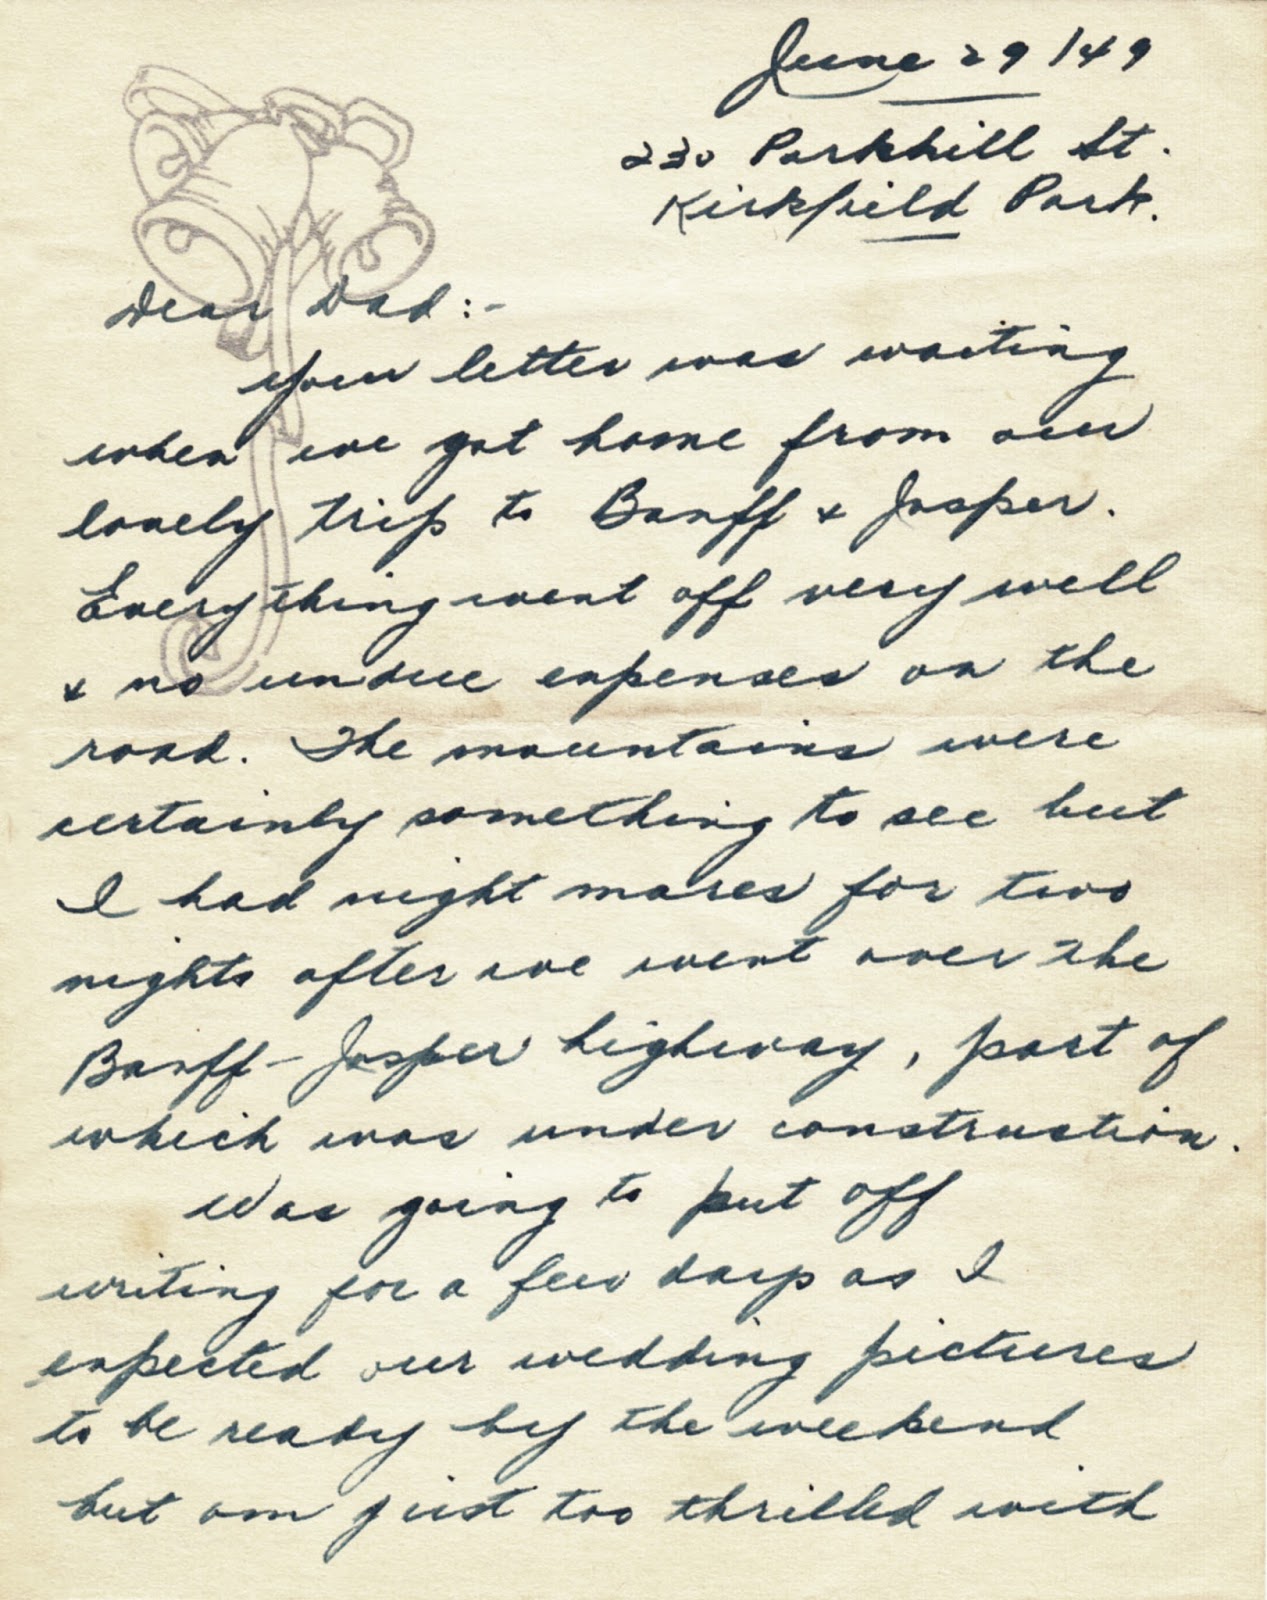 June 29/49
230 Parkhill St.
Kirkfield Park.
Dear Dad:-
Your letter was waiting
when we got home from our
lovely trip to Banff & Jasper.
Everything went off very well
& no undue expenses on the
road. The mountains were
certainly something to see but
I had night mares for two
nights after we went over the
Banff-Jasper highway, part of
which was under construction.
Was going to put off
writing for a few days as I
expected our wedding pictures
to be ready by the weekend
but am just too thrilled with